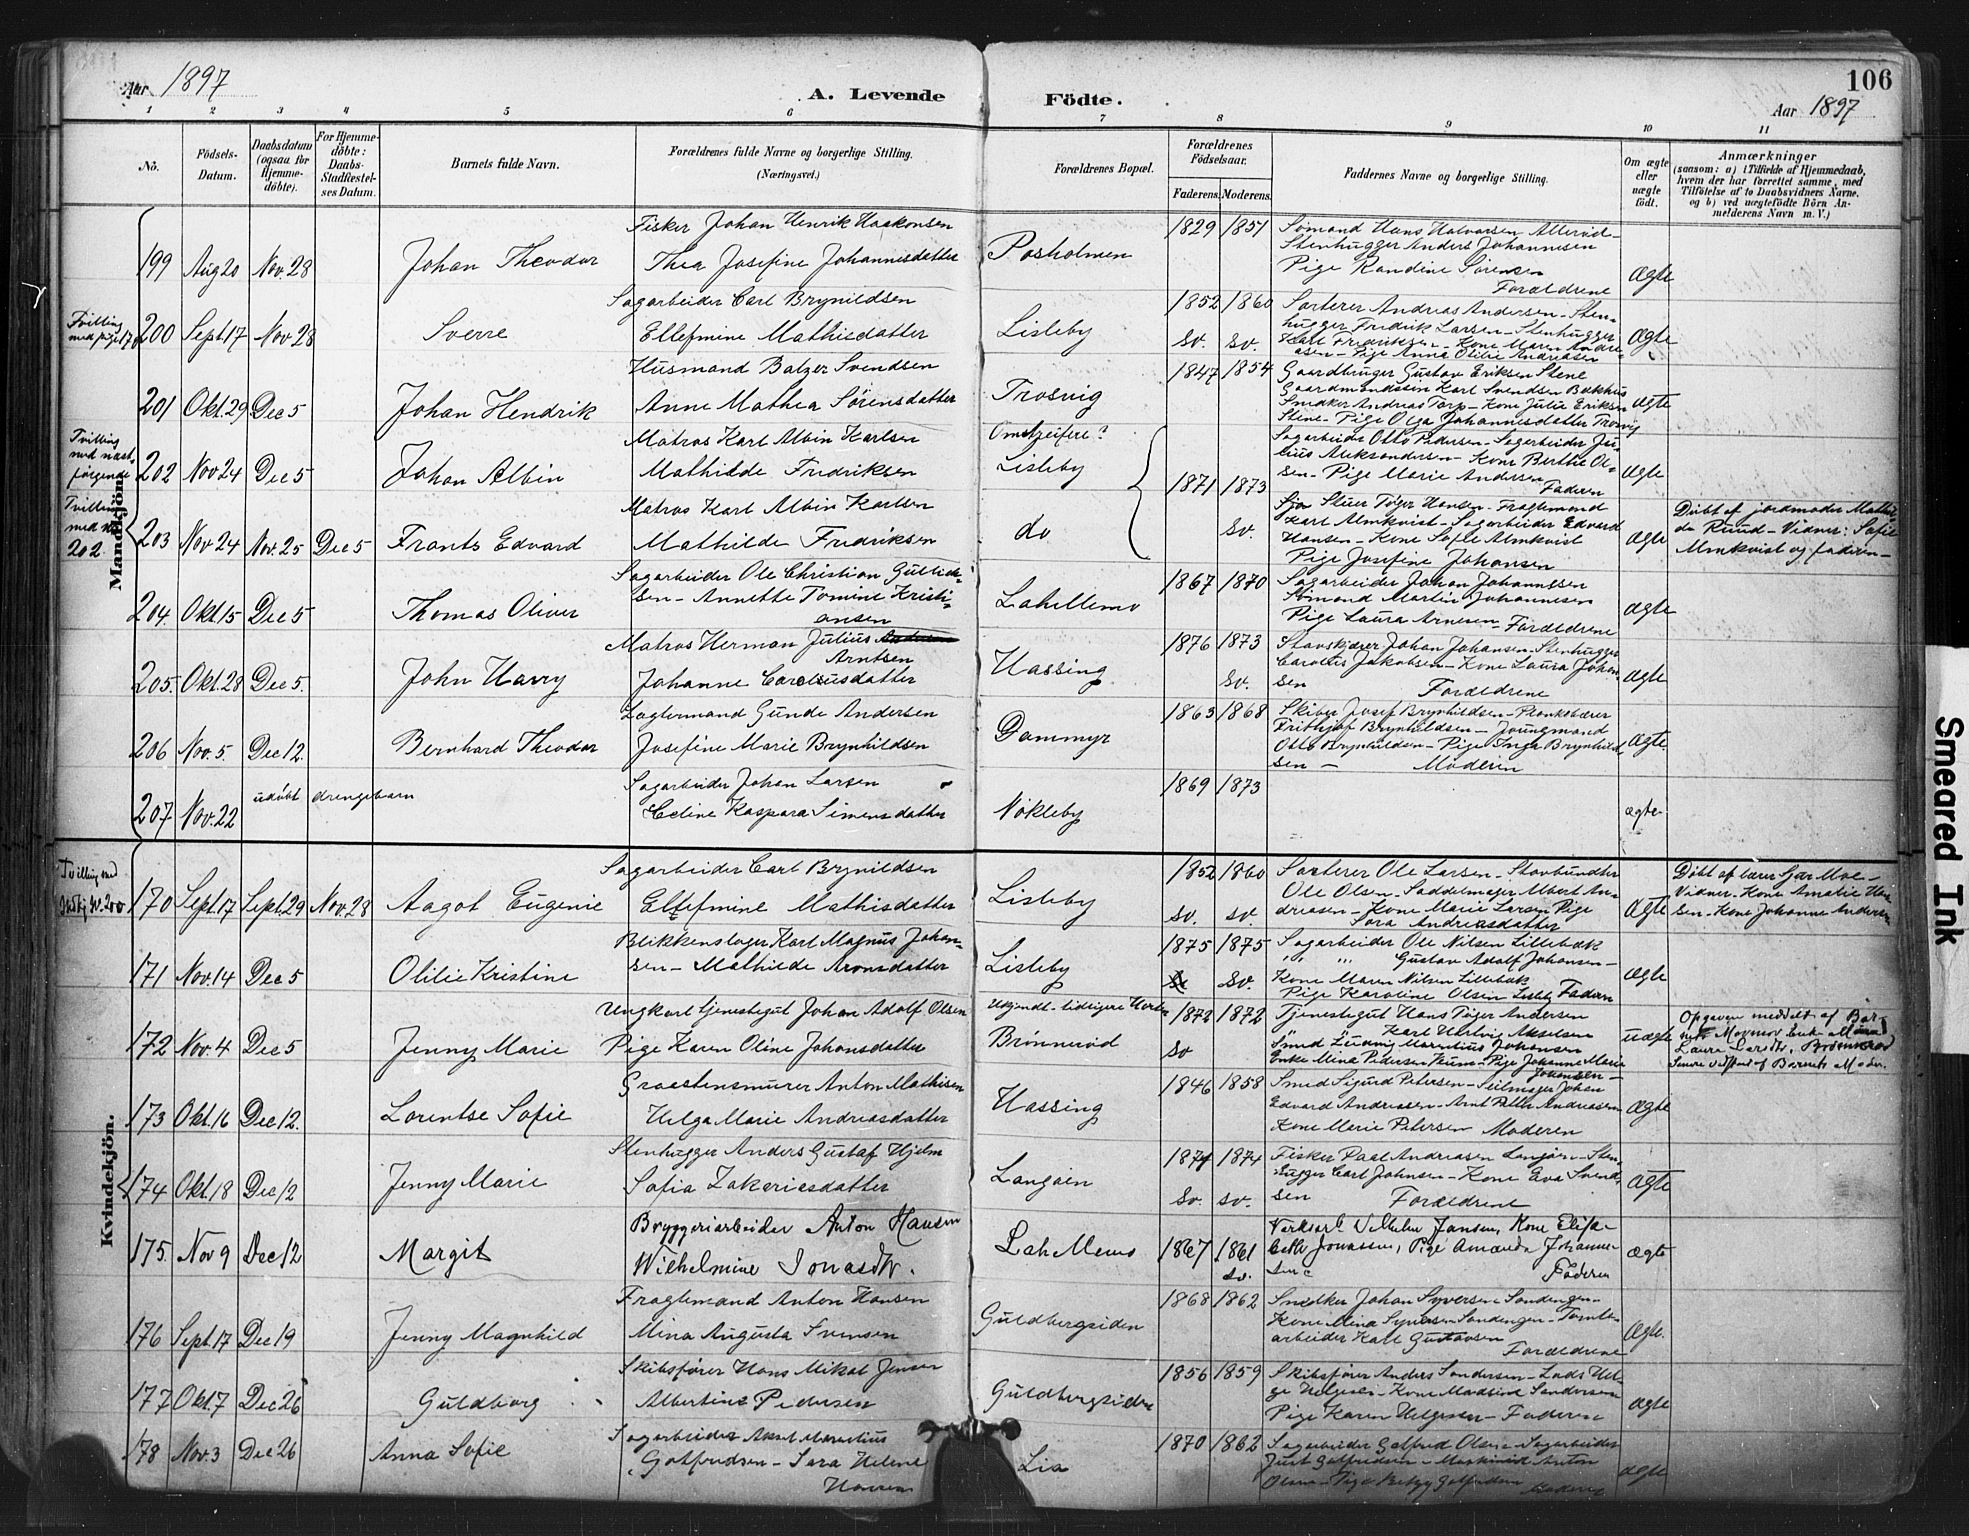 106
Aar 1897
A. Levende Födte.
Aar 1897
1 2 3 4 5 6 7 8 9 10 11
No.
Födsels-Datum.
Daabsdatum (ogsaa for Hjemme-döbte).
For Hjemme-döbte: Daabs-Stadfæstel-ses Datum.
Barnets fulde Navn.
Forældrenes fulde Navne og borgerlige Stilling. (Næringsvei.)
Forældrenes Bopæl.
Forældrenes Födselsaar.
Faderens. Moderens.
Faddernes Navne og borgerlige Stilling.
Om ægte eller uægte födt.
Anmærkninger
(saasom: a) i Tilfælde af Hjemmedaab, hvem der har forrettet samme, med Tilföielse af to Daabsvidners Navne. og b) ved uægtefödte Börn An-melderens Navn m. V.)
Mandkjön.
199 Aug 20 Nov. 28 Johan Theodor
Fisker Johan Henrik Haakonsen
Thea Josefine Johannisdatter
Posholmen
1829 1851
Sömand Hans Halvorsen
Stenhugger Anders Johannesen
Pige Randine Sörensen
Forældrene
Ægte
Tvilling med pige 170
200 Sept 17 Nov 28 Sverre
Sagarbeider Carl Brynildsen
Ellefmine Mathisdatter
Lisleby
1852 1860
sv. sv.
Sorterer Andreas Andersen - Sten-
hugger Fredrik Larsen - Stenhugger
Karl Fredriksen - Kone Maren Andre-
asen - Pige Anna Otilie Andreasen
Ægte
201 Okt. 29 Dec 5 Johan Hendrik
Husmand Balzer Svendsen
Anne Mathea Sörensdatter
Trosvig
1847 1854
Gaardbruger Gustav Eriksen Stene
Gaardmandssön Karl Svendsen Bakhus
Snedker Andreas Torp - Kone Julie Eriksen
Stene - Pige Olga Johannesdatter Trosvig
Ægte
Tvilling med næst-
følgende
202 Nov 24 Dec 5 Johan Albin
Matros Karl Albin Karlsen
Mathilde Fredriksen
Lisleby
1871 1873
Sagarbeider Otto Pedersen - Sagarbeider Ju-
lius Aleksandersen - Kone Berthe Ol-
sen - Pige Marie Andersen
Faderen
Ægte
Tvilling med No 202
203 Nov 24 Nov. 25 Dec 5 Frants Edvard
Matros Karl Albin Karlsen
Mathilde Fredriksen
do
sv.
Hansen - Fragtemand
Karl Almkvist - Sagarbeider Edvard
Hansen - Kone Sofie Almkvist
Pige Josefine Johansen
Ægte
Döbt af jordmoder Mathil-
de Ruud - Vidner: Sofie
Almkvist og faderen -
204 Okt. 15 Dec 5 Thomas Oliver
Sagarbeider Ole Christian Gulbrk-
sen - Annette Tomine Kristi-
ansen
Lahellemo
1867 1870
Sagarbeider Johan Johannesen
Sömand Martin Johannesen
Pige Laura Arnesen - Forældrene
Ægte
205. Okt. 28 Dec 5. John Harry
Matros Herman Julius
Arntsen
Johanne Caroliusdatter
Hassing
1876 1873
sv.
Stavskjærer Johan Johansen - Stenhugger
Carolius Jakobsen - Kone Laura Johan-
sen Forældrene
Ægte
206 Nov. 5. Dec 12. Bernhard Theodor
Lagtermand Gunde Andersen
Josefine Marie Brynhildsen
Dammyr
1863 1868
Skiber Josef Brynhildsen - Plankebærer
Frithjof Brynhildsen - Joungmand
Otto Brynhildsen - Pige Inga Brynhild-
sen - Moderen
Ægte.
207 Nov. 22 udöbt drengebarn
Sagarbeider Johan Larsen
Celine Kaspara Simensdatter
Nökleby
1869 1873
Ægte
Kvindekjön.
Tvilling med
170 Sept. 17 Sept. 29 Nov. 28 Aagot Eugenie
Sagarbeider Carl Brynildsen
Ellefmine Mathisdatter
Lisleby
1852 1860
sv. sv.
Sorterer Ole Larsen - Stavbundter
Ole Olsen - Saddelmager Albert An-
dreasen - Kone Marie Larsen Pige
Sara Andreasdatter
Ægte
Döbt af lærer Gjær Moe -
Vidner: Kone Amalie Han-
sen - Kone Johanne Andersen
171 Nov. 14 Dec 5 Olilie Kristine
Blikkenslager Karl Magnus Johan-
sen - Mathilde Aronsdatter
Lisleby
1875 1875
sv.
Sagarbeider Ole Nilsen Lillebæk
" " Gustav Adolf Johansen -
Kone Maren Nilsen Lillebæk
Pige Karoline Olsen Lisleby Faderen
Ægte
172 Nov. 4 Dec 5 Jenny Marie
Ungkarl tjenestegut Johan Adolf Olsen
Pige Karen Oline Johansdatter
Brönneröd
1872 1872
sv
Tjenestegut Hans Piger Andersen
Karl Hertvig Akselsen
Smed Ludvig Marentius Johansen
Enke Mina Pedersen - Pige Johanne Marie
Johansen -
uægte
Opgaven meddelt af Bar-
nets Mormor Enke
Laura Larsdtr. Brönneröd
Senere vedstaaet af Barnets Moder.
173 Okt. 16 Dec 12. Lorentse Sofie
Graastensmurer Anton Mathisen
Helga Marie Andreasdatter
Hassing
1846 1858
Smed Sigurd Petersen - Seilmager Johan
Edvard Andreasen - Arnt Petter Andreasen
Kone Marie Petersen Moderen
Ægte
174 Okt. 18 Dec 12 Jenny Marie
Stenhugger Anders Gustaf Hjelm
Sofia Zakeriasdatter
Langöen
1874 1874
sv. sv.
Fisker Paal Andreasen Langöen - Sten-
hugger Carl Johnsen - Kone Eva Svend-
sen Forældrene
Ægte
175. Nov 9 Dec 12 Margit
Bryggeriarbeider Anton Hansen
Wilhelmine Jonasdtr.
Lahellemo
1867 1861
sv.
Verksarb. Vilhelm Jansen, Kone Elisa-
beth Jonassen, Pige Amanda Johanne-
sen Faderen
Ægte
176 Sept. 17 Dec 19 Jenny Magnhild
Fragtemand Anton Hansen
Mina Augusta Svensen
Guldbergsiden
1868 1862
Snedker Johan Syversen Sandengen -
Kone Mina Syversen Sandengen - Tomte-
arbeider Karl Gustavsen
Forældrene
Ægte.
177 Okt. 7 Dec 26 Guldborg
Skibsförer Hans Mikal Jensen
Albertine Pedersen
Guldbergsiden
1856 1859
Skibsförer Anders Sandersen - Lods Hel-
ge Helgesen - Kone Madsine Sandersen
Pige Karen Helgesen - Faderen
Ægte
178 Nov. 3 Dec 26 Anna Sofie
Sagarbeider Aksel Marentius
Gotfredsen - Sara Helene
Hansen
Lia
1870 1862
Sagarbeider Gotfred Olsen - Sagarbeider
Just Gotfredsen - Maskinist Anton
Olsen - Pige Betzy Gotfredsen Moderen
Ægte
Smeared Ink